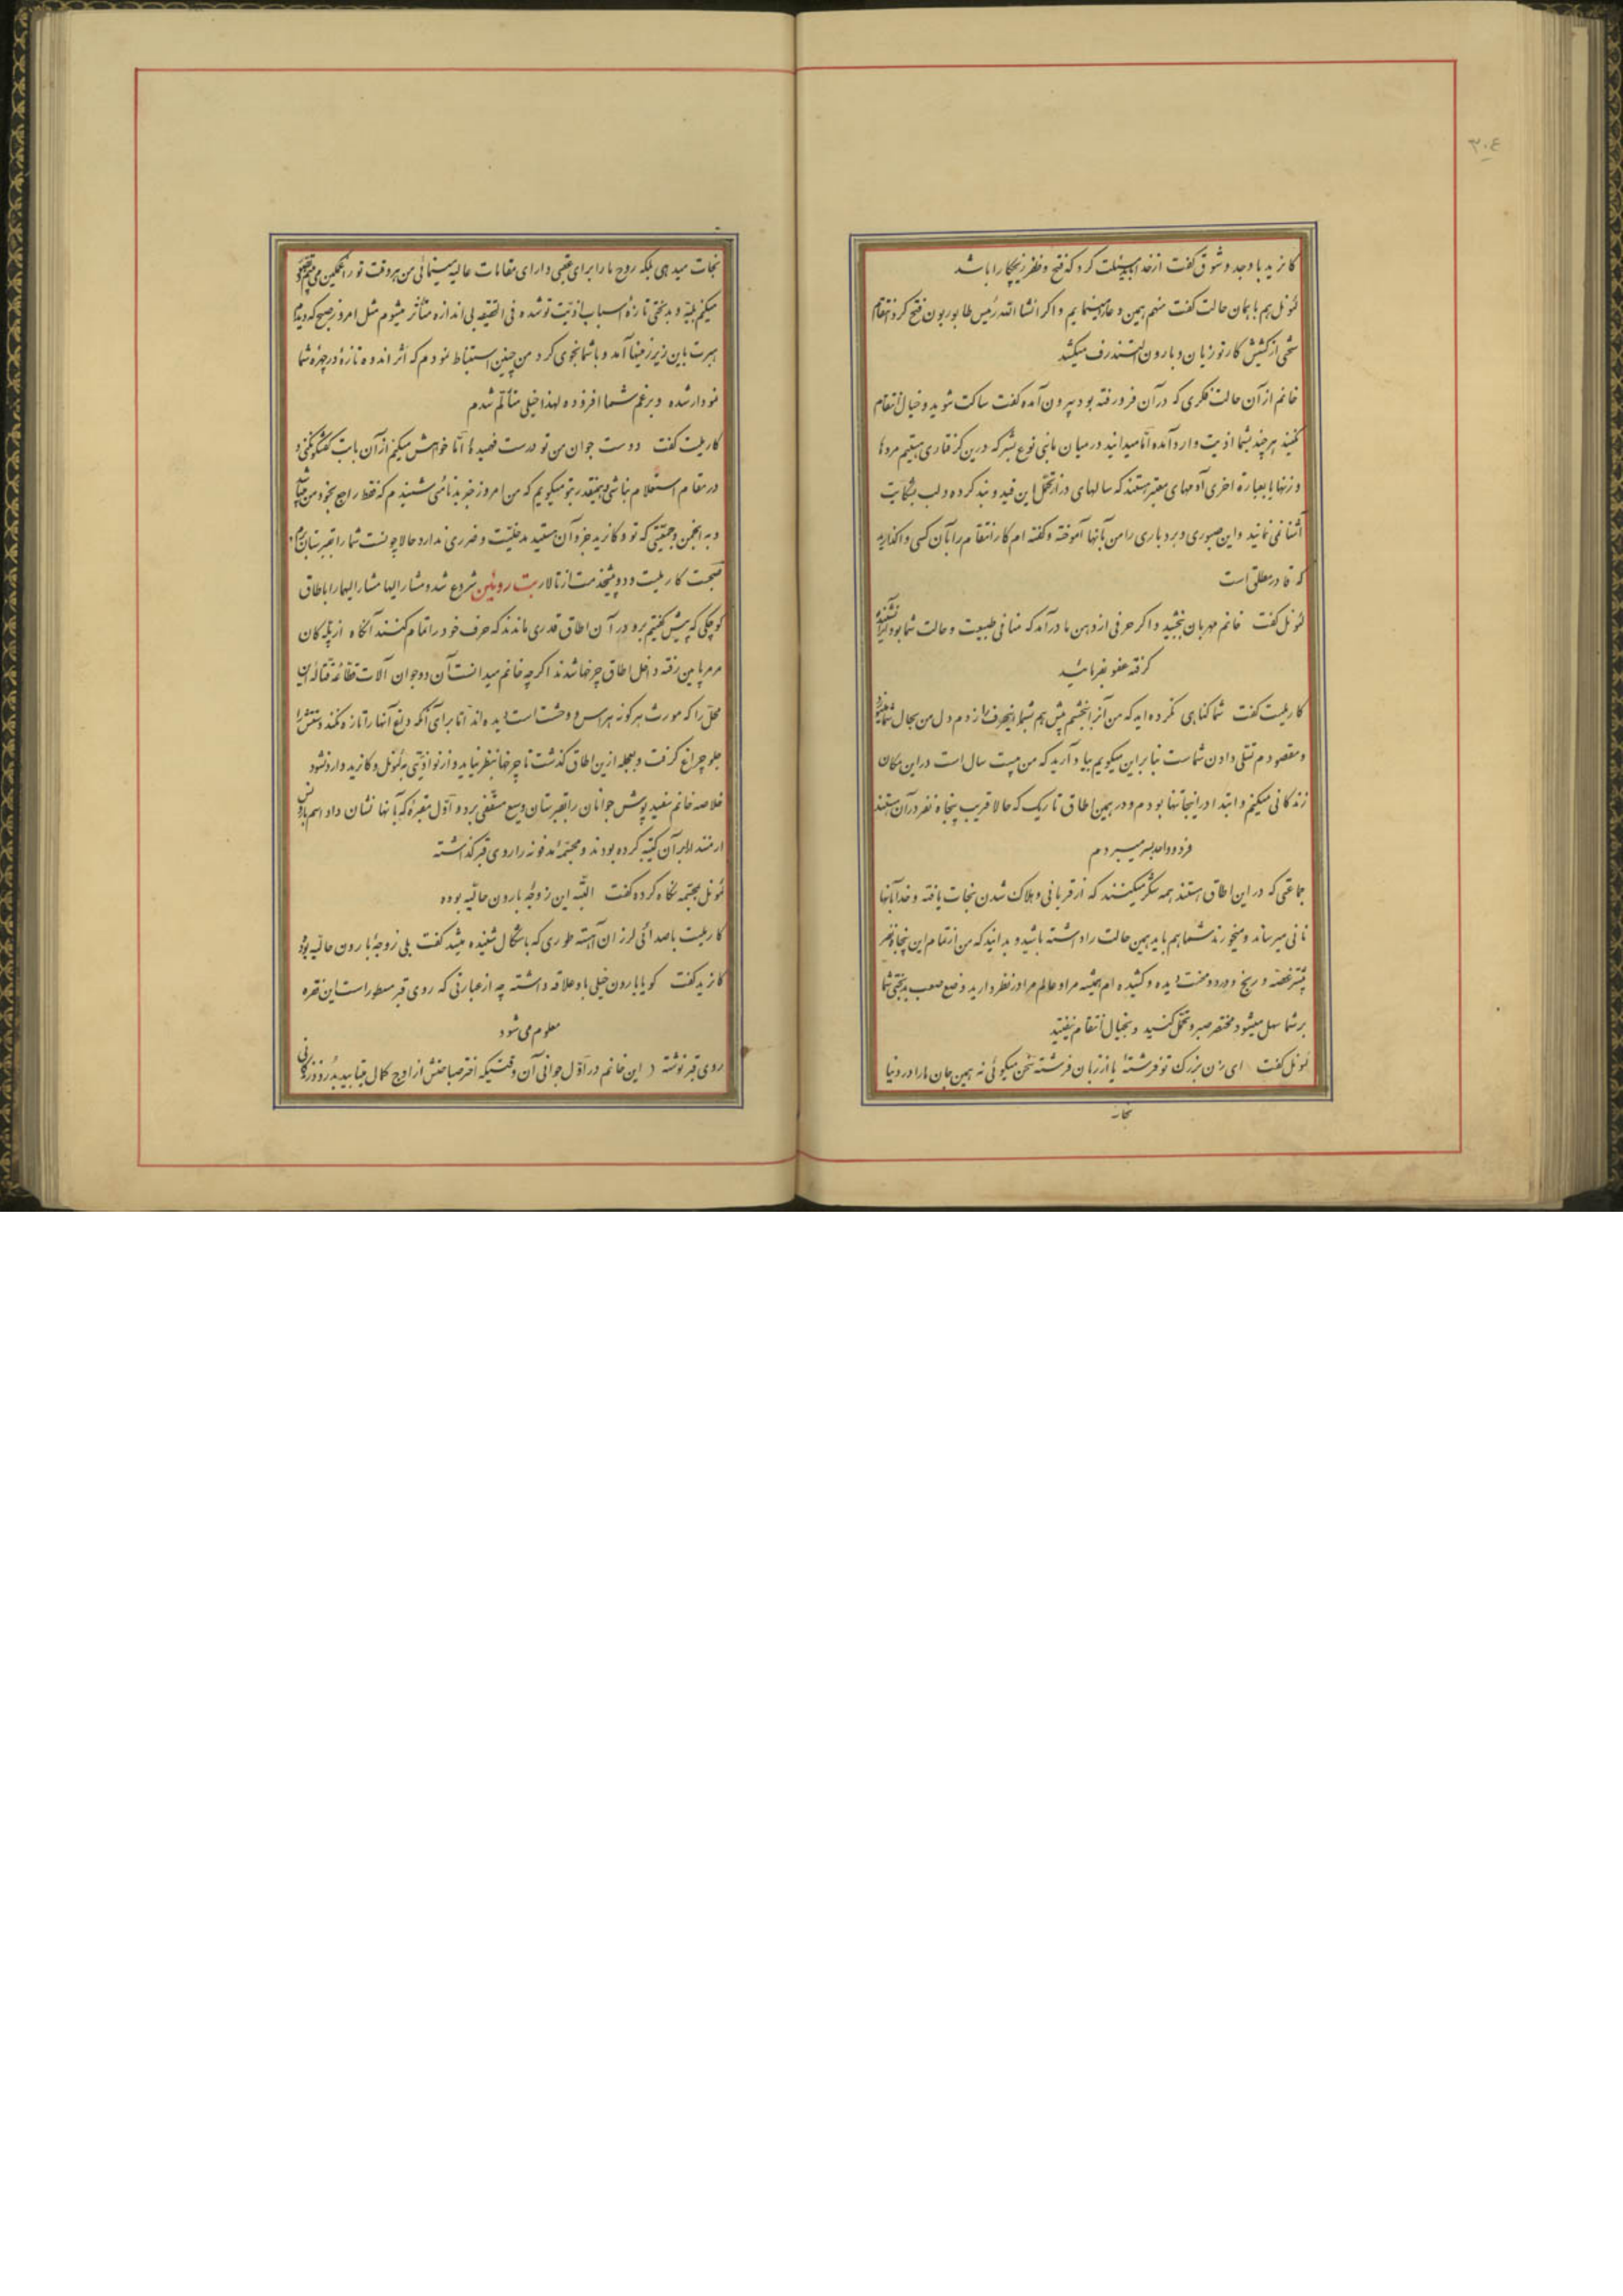 ۳۰٤
کانرید با وجد و شوق گفت از خدا باید مسئلت کرد که فتح و ظفر زیچکار را باشد
لئونل هم با همان حالت گفت منهم همین دعا را مینمایم و اگر انشاءالله رئیس طابوریون فتح کرد انتقام
سختی از کشیش کارتوزیان و بارون التندرف میکشد
خانم از آن حالت فکری که در آن فرو رفته بود بیرون آمده گفت ساکت شوید و خیال انتقام
نکنید هر چند بشما اذیت وارد آمده اما میدانید در میان مابنی نوع بشر که درین گرفتاری هستیم مردها
و زنها یا بعبارة اخری آدمهای معتبر هستند که سالهای دراز تحمل این قید و بند کرده و لب بشکایت
آشنا نمی نمایند و این صبوری و بردباری را من بآنها آموخته و گفته ام کار انتقام را بآن کسی واگذارید
که قادر مطلق است
لئونل گفت خانم مهربان ببخشید و اگر حرفی از دهن ما درآمد که منافی طبیعت و حالت شما بود
گرفته عفو بفرمائید
کاریلیت گفت شما گناهی نکرده اید که من آنرا ببخشم پیش هم بشما اینحرف را زدم دل من بحال شما میسوزد
و مقصودم تسلی دادن شماست بنابراین میگویم بیاد آرید که من بیست سال است در این مکان
زندگانی میکنم و ابتدا در اینجا تنها بودم و در همین اطاق تاریک که حالا قریب پنجاه نفر در آن هستند
فرد و واحد بسر میبردم
جماعتی که در این اطاق هستند همه شکر میکنند که از قربانی و هلاک شدن نجات یافته و خدا بآنها
نانی میرساند و میخورند شما هم باید همین حالت را داشته باشید و بدانید که من از تمام این پنجاه نفر
بیشتر غصه و رنج و درد و محنت دیده و کشیده ام همیشه مرا و عالم مرا در نظر دارید وضع صعب بدبختی شما
بر شما سهل میشود مختصر صبر و تحمل کنید و بخیال انتقام نیفتید
لئونل گفت ای زن بزرگ تو فرشتۀ یا از زبان فرشته سخن میگوئی نه همین جان ما را در دنیا
نجات
نجات میدهی بلکه روح ما را برای عقبی دارای مقامات عالیه مینمائی من هر وقت تو را غمگین می بینم
میکنم بلیه و بدبختی تازۀ اسباب اذیت تو شده فی الحقیقه بی اندازه متأثر میشوم مثل امروز صبح که دیدم
هبرت باین زیرزمینها آمد و با شما نجوی کرد من چنین استنباط نمودم که اثر اندوه تازۀ در چهرۀ شما
نمودار شده و بر غم شما افزوده لهذا خیلی متألم شدم
کاریلیت گفت دوست جوان من تو درست فهمیدۀ اما خواهش میکنم از آن بابت گفتگو نکنی و
در مقام استعلام نباشی همینقدر بتو میگویم که من امروز خبر بدنامئی شنیدم که فقط راجع بخود من میباشد
و به انجمن و جمعیتی که تو و کانرید جزو آن هستید مدخلیت و ضرری ندارد حالا چونست شما را بقبرستان برم
صحبت کاریلیت و دو پیشخدمت از تالار بت روبلین شروع شد و مشارالیها مشارالیهما را باطاق
کوچکی که پیش گفتیم برد در آن اطاق قدری ماندند که حرف خود را تمام کنند آنگاه از پلکان
مرمر پایین رفته داخل اطاق چرخها شدند اگرچه خانم میدانست آن دو جوان آلات قطاعه قتاله این
محل را که مورث هر گونه هراس و وحشت است دیده اند اما برای آنکه داغ آنها را تازه نکند دستش را
جلو چراغ گرفت و بعجله ازین اطاق گذشت تا چرخها بنظر نیاید و از نو اذیتی به لئونل و کانرید وارد نشود
خلاصه خانم سفید پوش جوانان را بقبرستان وسیع مسقفی برد و اول مقبرۀ که بآنها نشان داد اسم بارونس
ارمنتد را بر آن کتیبه کرده بودند و مجسمۀ مدفونه را روی قبر گذاشته
لئونل بمجسمه نگاه کرده گفت البته این زوجۀ بارون حالیه بوده
کاریلیت با صدائی لرزان آهسته طوری که باشکال شنیده میشد گفت بلی زوجۀ بارون حالیه بود
کانرید گفت گویا بارون خیلی باو علاقه داشته چه از عبارتی که روی قبر مسطور است این فقره
معلوم می شود
روی قبر نوشته ( این خانم در اول جوانی آن وقتیکه اختر صباحتش از اوج کمال میتابید بدرود زندگانی